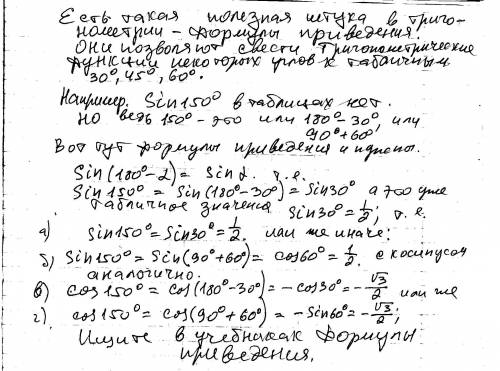 Есть такая полезная штука в триго-
нометрии - формулы приведения!
Они позволяют свести тригонометрические
функции некоторых углов к табличным
30°, 45°, 60°.
Например. Sin150° в таблицах нет.
Но ведь 150° - это или 180°-30°, или
90°+60°
Вот тут формулы приведения и нужны.
Sin(180°-α) = Sinα. т.е.
Sin150° = Sin(180°-30°) = Sin30° а это уже
табличное значение Sin30° = 1/2, т.е.
а) Sin150° = Sin30° = 1/2. или же иначе:
б) Sin150° = Sin(90°+60°) = cos60° = 1/2. с косинусом
аналогично.
в) cos150° = cos(180°-30°) = -cos30° = -√3/2 или же
г) cos150° = cos(90°+60°) = -Sin60° = -√3/2;
Ищите в учебниках формулы
приведения.